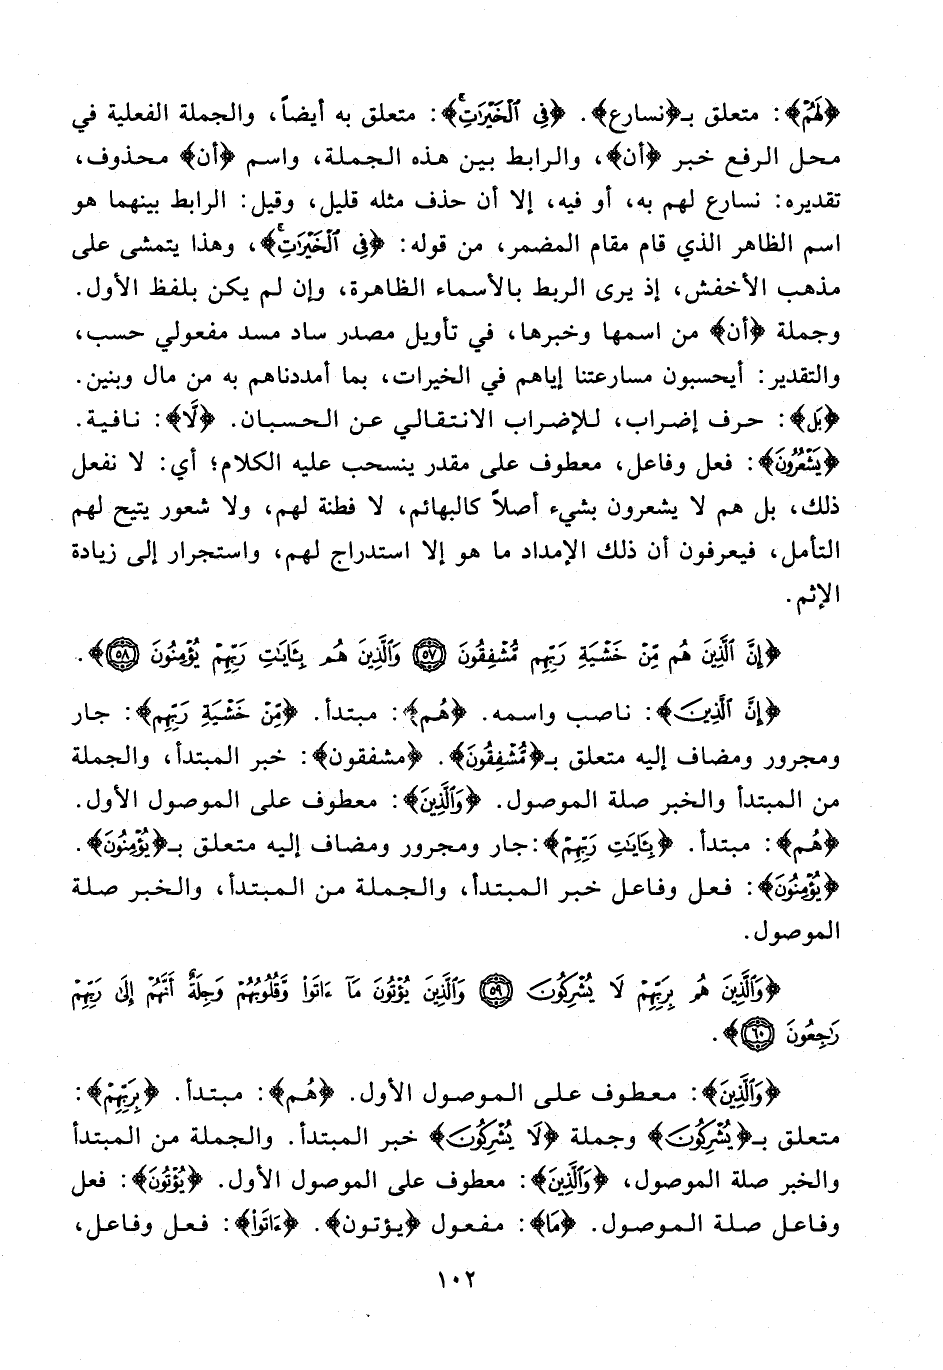 ﴿لَهُمْ﴾: متعلق بـ﴿نسارع﴾. ﴿فِي ٱلْخَيْرَٰتِۚ﴾: متعلق به أيضاً، والجملة الفعلية في
محل الرفع خبر ﴿أن﴾، والرابط بين هذه الجملة، واسم ﴿أن﴾ محذوف،
تقديره: نسارع لهم به، أو فيه، إلا أن حذف مثله قليل، وقيل: الرابط بينهما هو
اسم الظاهر الذي قام مقام المضمر، من قوله: ﴿فِي ٱلْخَيْرَٰتِۚ﴾، وهذا يتمشى على
مذهب الأخفش، إذ يرى الربط بالأسماء الظاهرة، وإن لم يكن بلفظ الأول.
وجملة ﴿أن﴾ من اسمها وخبرها، في تأويل مصدر ساد مسد مفعولي حسب،
والتقدير: أيحسبون مسارعتنا إياهم في الخيرات، بما أمددناهم به من مال وبنين.
﴿بَل﴾: حرف إضراب، للإضراب الانتقالي عن الحسبان. ﴿لَّا﴾: نافية.
﴿يَشْعُرُونَ﴾: فعل وفاعل، معطوف على مقدر ينسحب عليه الكلام؛ أي: لا نفعل
ذلك، بل هم لا يشعرون بشيء أصلاً كالبهائم، لا فطنة لهم، ولا شعور يتيح لهم
التأمل، فيعرفون أن ذلك الإمداد ما هو إلا استدراج لهم، واستجرار إلى زيادة
الإثم.
﴿إِنَّ ٱلَّذِينَ هُم مِّنْ خَشْيَةِ رَبِّهِم مُّشْفِقُونَ ٥٧ وَٱلَّذِينَ هُم بِـَٔايَٰتِ رَبِّهِمْ يُؤْمِنُونَ ٥٨﴾.
﴿إِنَّ ٱلَّذِينَ﴾: ناصب واسمه. ﴿هُم﴾: مبتدأ. ﴿مِّنْ خَشْيَةِ رَبِّهِم﴾: جار
ومجرور ومضاف إليه متعلق بـ﴿مُّشْفِقُونَ﴾. ﴿مشفقون﴾: خبر المبتدأ، والجملة
من المبتدأ والخبر صلة الموصول. ﴿وَٱلَّذِينَ﴾: معطوف على الموصول الأول.
﴿هُم﴾: مبتدأ. ﴿بِـَٔايَٰتِ رَبِّهِمْ﴾:جار ومجرور ومضاف إليه متعلق بـ﴿يُؤْمِنُونَ﴾.
﴿يُؤْمِنُونَ﴾: فعل وفاعل خبر المبتدأ، والجملة من المبتدأ، والخبر صلة
الموصول.
﴿وَٱلَّذِينَ هُم بِرَبِّهِمْ لَا يُشْرِكُونَ ٥٩ وَٱلَّذِينَ يُؤْتُونَ مَآ ءَاتَوا۟ وَّقُلُوبُهُمْ وَجِلَةٌ أَنَّهُمْ إِلَىٰ رَبِّهِمْ
رَٰجِعُونَ ٦٠﴾.
﴿وَٱلَّذِينَ﴾: معطوف على الموصول الأول. ﴿هُم﴾: مبتدأ. ﴿بِرَبِّهِمْ﴾:
متعلق بـ﴿يُشْرِكُونَ﴾ وجملة ﴿لَا يُشْرِكُونَ﴾ خبر المبتدأ. والجملة من المبتدأ
والخبر صلة الموصول، ﴿وَٱلَّذِينَ﴾: معطوف على الموصول الأول. ﴿يُؤْتُونَ﴾: فعل
وفاعل صلة الموصول. ﴿مَا﴾: مفعول ﴿يؤتون﴾. ﴿ءَاتَوا۟﴾: فعل وفاعل،
١٠٢